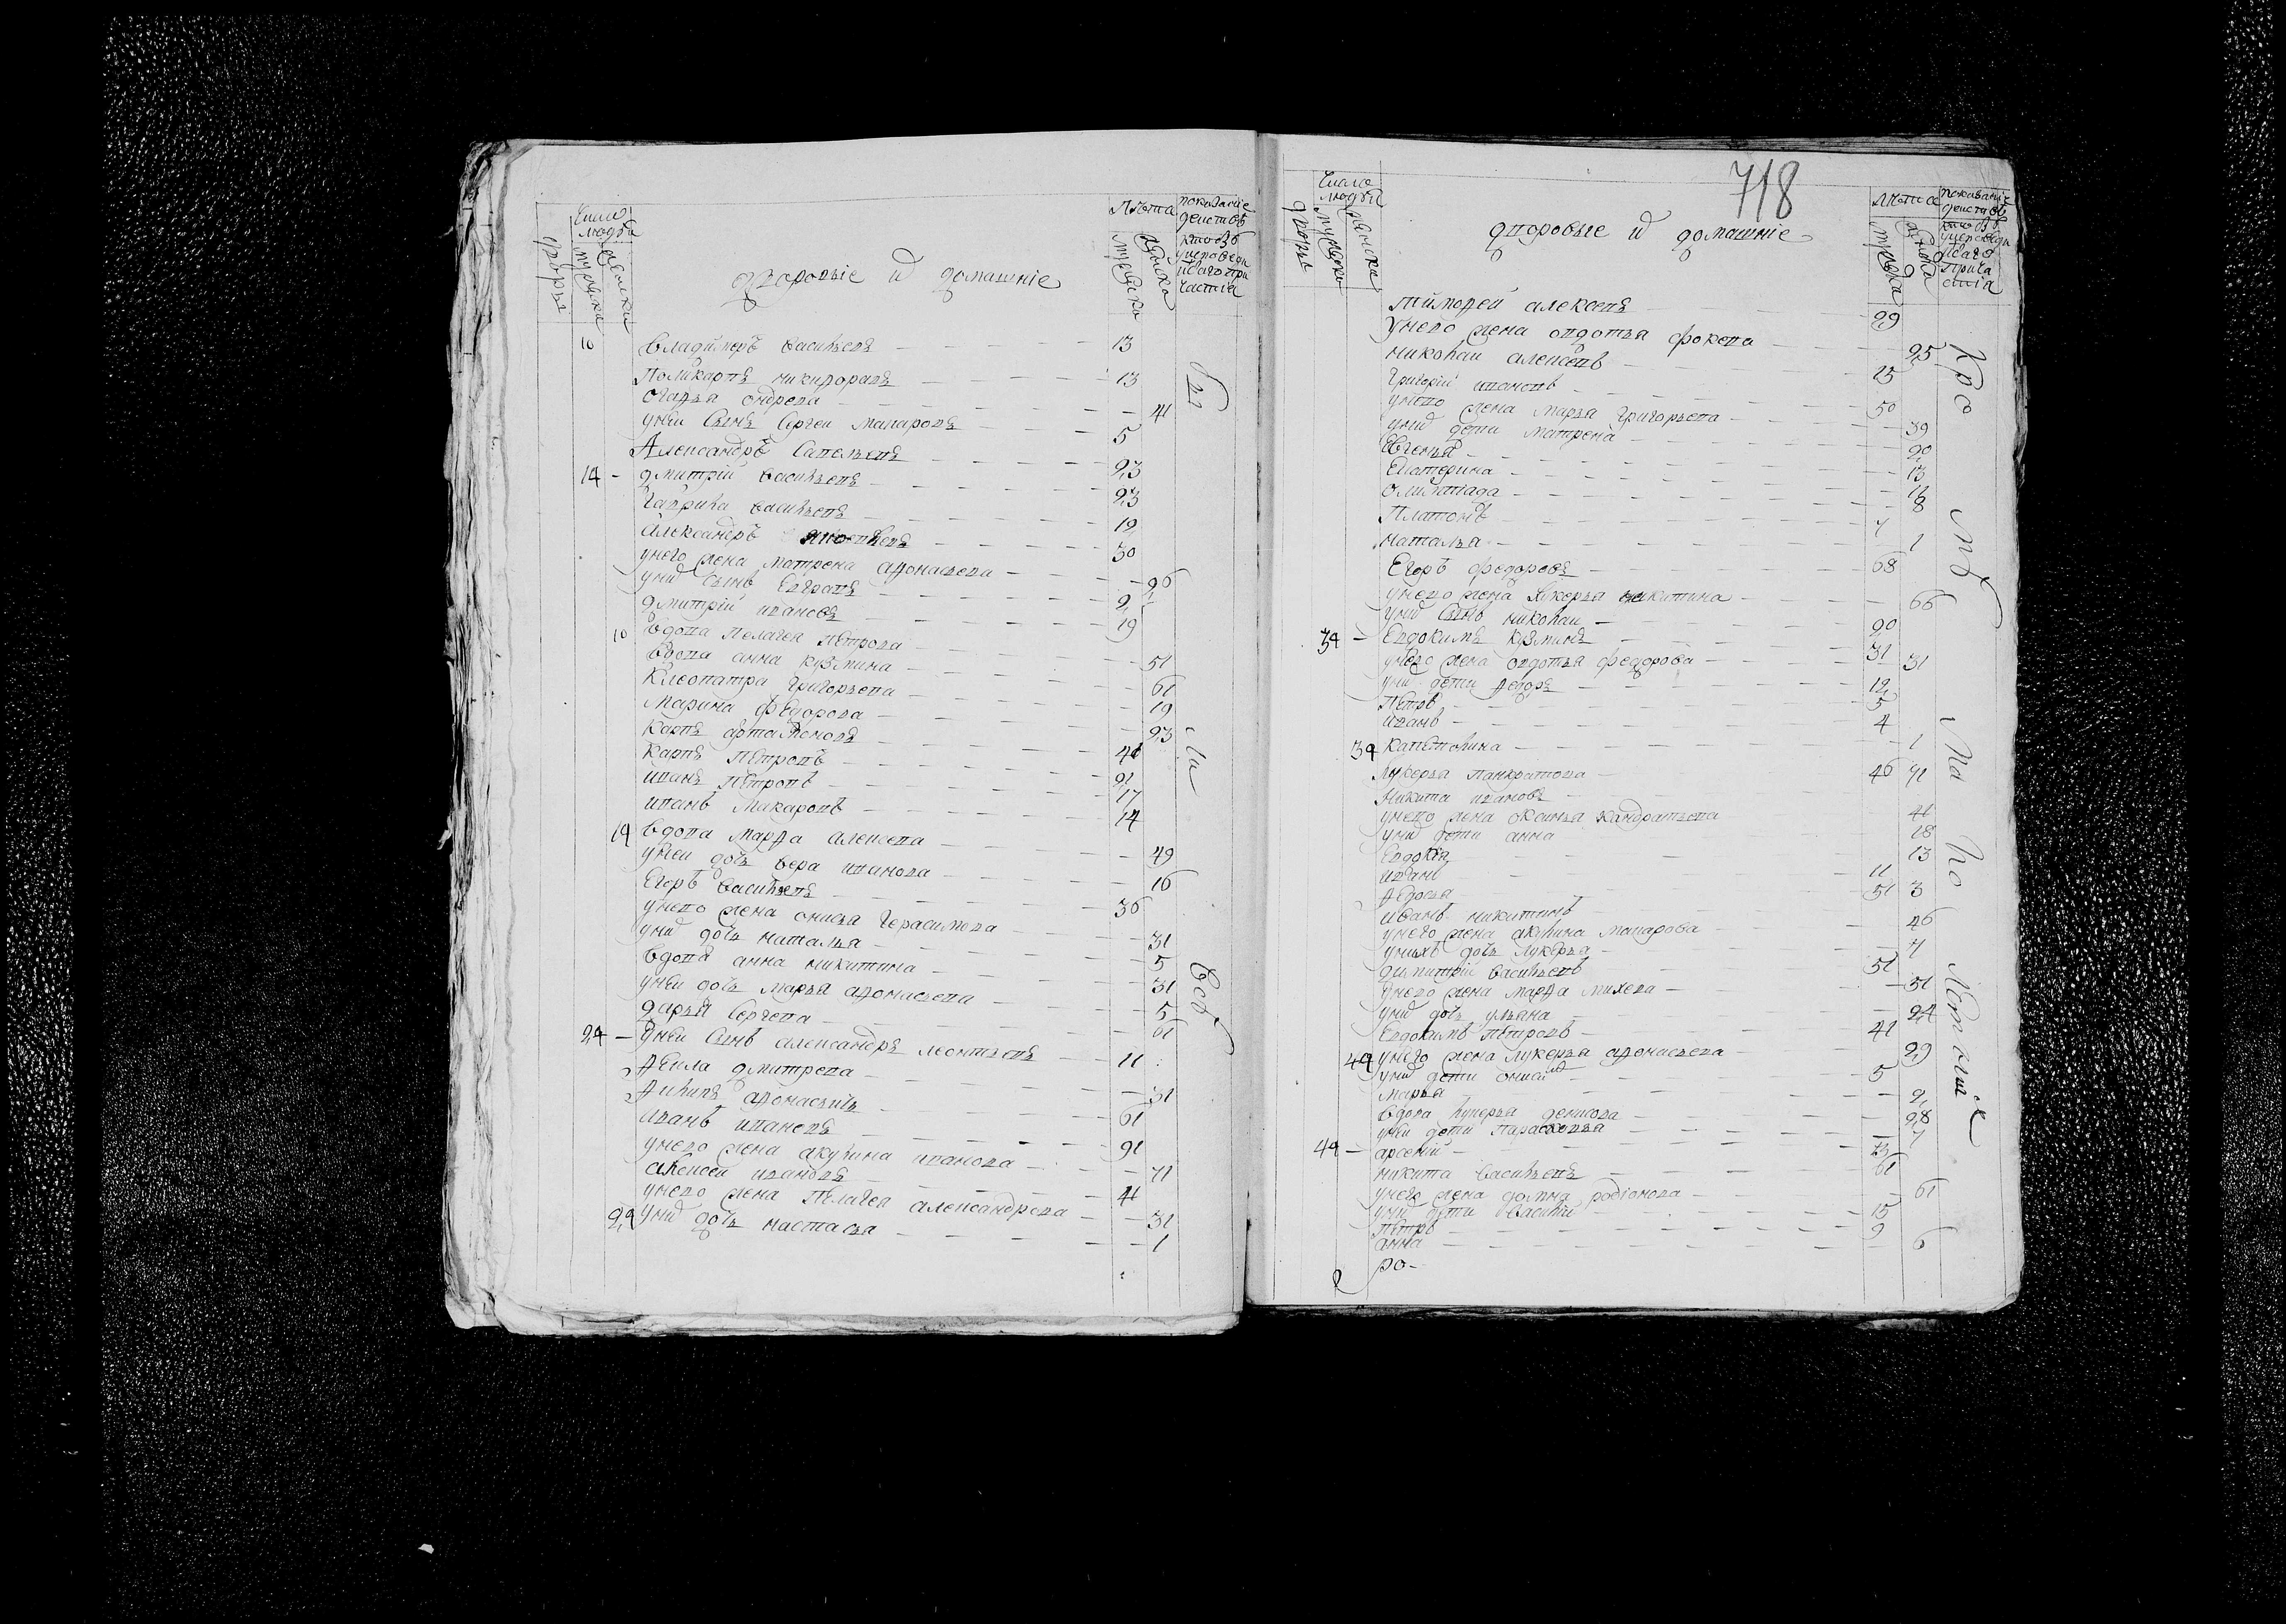 Число людей
дворы
мужеска
женска
дворовые и домашніе
лѣта
мужеска
женска
показаніе действъ
кто въ
10 Владимеръ васильевъ 13
Поликарпъ никифоравъ 13
ондрева 41
унеи сынъ Сергеи макаровъ 5
Александръ Савельевъ 23
14 дмитрїй васильевъ 23
Гаврила васильевъ 19
Александръ 30
унего жена матрена афонасьева 26
унихъ сынъ Евграфъ 2
дмитрїй ивановъ 19
10 вдова пелагея петрова 51
вдова анна кузмина 61
Клеопатра григорьева 19
марина федорова 23
карпъ артамоновъ 41
карпъ петровъ 21
иванъ петровъ 17
иванъ макаровъ 14
19 вдова марфа алексева 49
унеи дочь вера иванова 16
Егоръ васильевъ 36
унево жена онисья герасимова 31
унихъ дочь наталья 5
вдова анна никитина 31
унеи дочь марья афонасьева 5
дарья сергева 61
24 унеи сынъ александръ леонтьевъ 11
Фекла дмитрева 31
Филипъ афонасьевъ 61
иванъ ивановъ 91
унево жена акулина иванова 71
алексеи ивановъ 41
унево жена пелагея александрова 31
29 унихъ дочь настасья 1
718
Число людей
дворы
мужеска
женска
дворовые и домашніе
лѣта
мужеска
женска
показаніе действъ
тимофей алексевъ 29
унево жена овдотья фокева 25
николаи алексевъ 25
григорїй ивановъ 50
унево жена марья григорьева 39
унихъ дети матрена 20
Евгенья 13
Екатерина 16
олимпїада 8
Платонъ 7
наталья 1
Егоръ федоровъ 68
унево жена лукерья никитина 66
унихъ сынъ николаи 20
34 Евдокимъ кузминъ 31
унево жена овдотья федорова 31
унихъ дети Федоръ 12
Петръ 5
иванъ 4
39 капетолина 1
лукерья панкратова 91
никита ивановъ 46
унево жена оксинья кандратьева 41
унихъ дети анна 18
Евдокея 13
иванъ 11
Федосья 3
иванъ никитинъ 51
унего жена акулина макарова 46
унихъ дочь лукерья 7
димитрїй васильевъ 51
унево жена марфа михева 51
унихъ дочь ульяна 24
Евдокимъ петровъ 41
44 унего жена лукерья афонасьева 29
унихъ дети 5
марья 2
вдова лукерья денисова 28
унеи дети парасковья 7
49 арсений
никита васильевъ 61
унего жена домна родїонова 61
унихъ дети василїй 15
петръ 9
анна 6
ро-